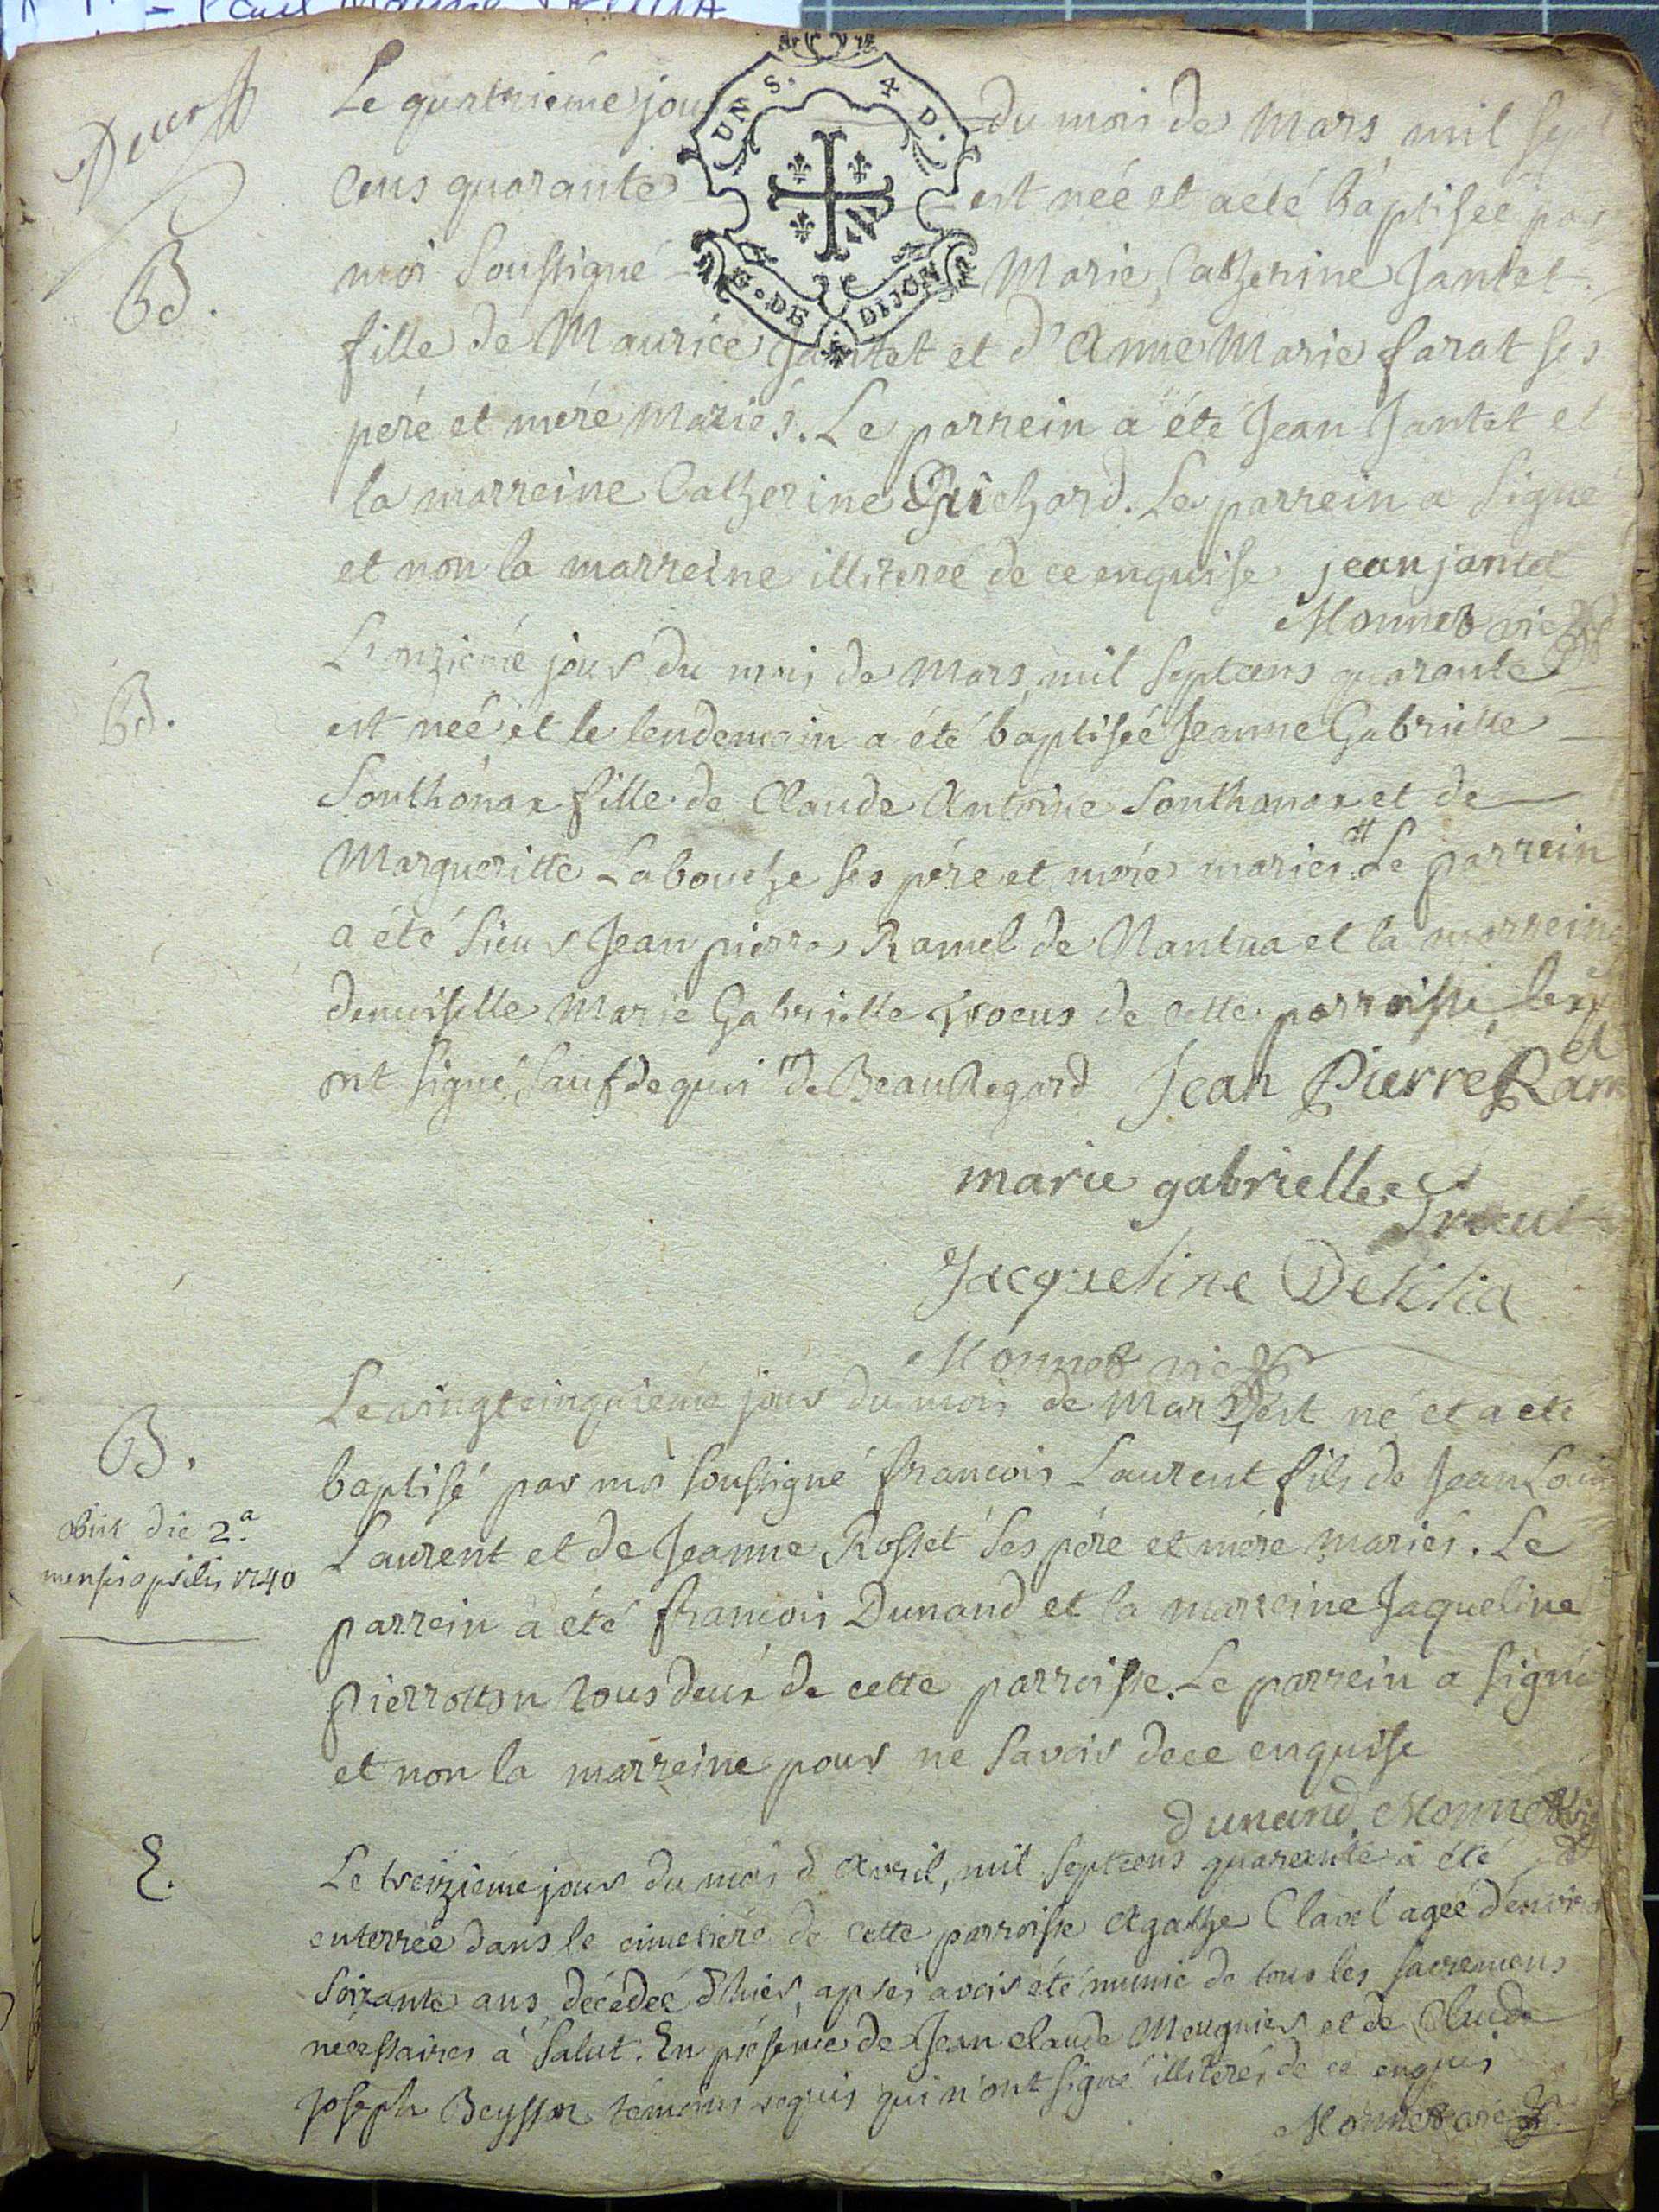 Le quatriéme jour du mois de Mars mil sept
Cens quarante est née et a eté baptisee par
moi Soussigné Marie Catherine Jantet
UN S. 4 D.
G. DE DIJON
B.
fille de Maurice Jantet et d'Anne Marie farat ses
pére et mére Mariés. Le parrein a été Jean Jantet et
la marreine Catherine Guichard. Le parrein a Signé
et non la marreine illiterée de ce enquise jean jantet
Monnet vic
L'onziéme jour du mois de Mars mil septcens quarante
B.
est neé et le lendemain a été baptiseé Jeanne Gabrielle
Sonthonax fille de Claude Antoine Sonthonax et de
Margueritte Labouche ses pére et mére mariés. Le parrein
a été Sieur Jean pierre Ramel de Nantua et la marreine
demoiselle Marie Gabrielle de cette parroisse les
ont signé, Sauf de qui de BeauRegard Jean Pierre Ram
marie gabrielle
Jacqueline Delilia
Monnet vic
Le vingtcinquiéme jour du mois de Mars est né et a été
B.
baptisé par moi soussigné francois Laurent fils de Jean Louis
obiit die 2.a
mensis aprilis 1740
Laurent et de Jeanne Rosset Ses pére et mére Mariés. Le
parrein a été francois Dunand et la marreine Jaqueline
pierrotton tous deux de cette parroisse. Le parrein a signé
et non la marreine pour ne savoir de ce enquise
Dunand. Monnet vic
E.
Le treiziéme jour du mois d'Avril, mil septcens quarante a été
enterrée dans le cimetiére de cette parroisse Agathe Clavel agée d'environ
soixante ans décédeé d'hier, apres avoir été munie de tous les sacremens
nécessaires à Salut. En présence de Jean claude Mougnier et de Claude
joseph Beysson témoins requis qui n'ont signé illiterés de ce enquis
Monnet vic